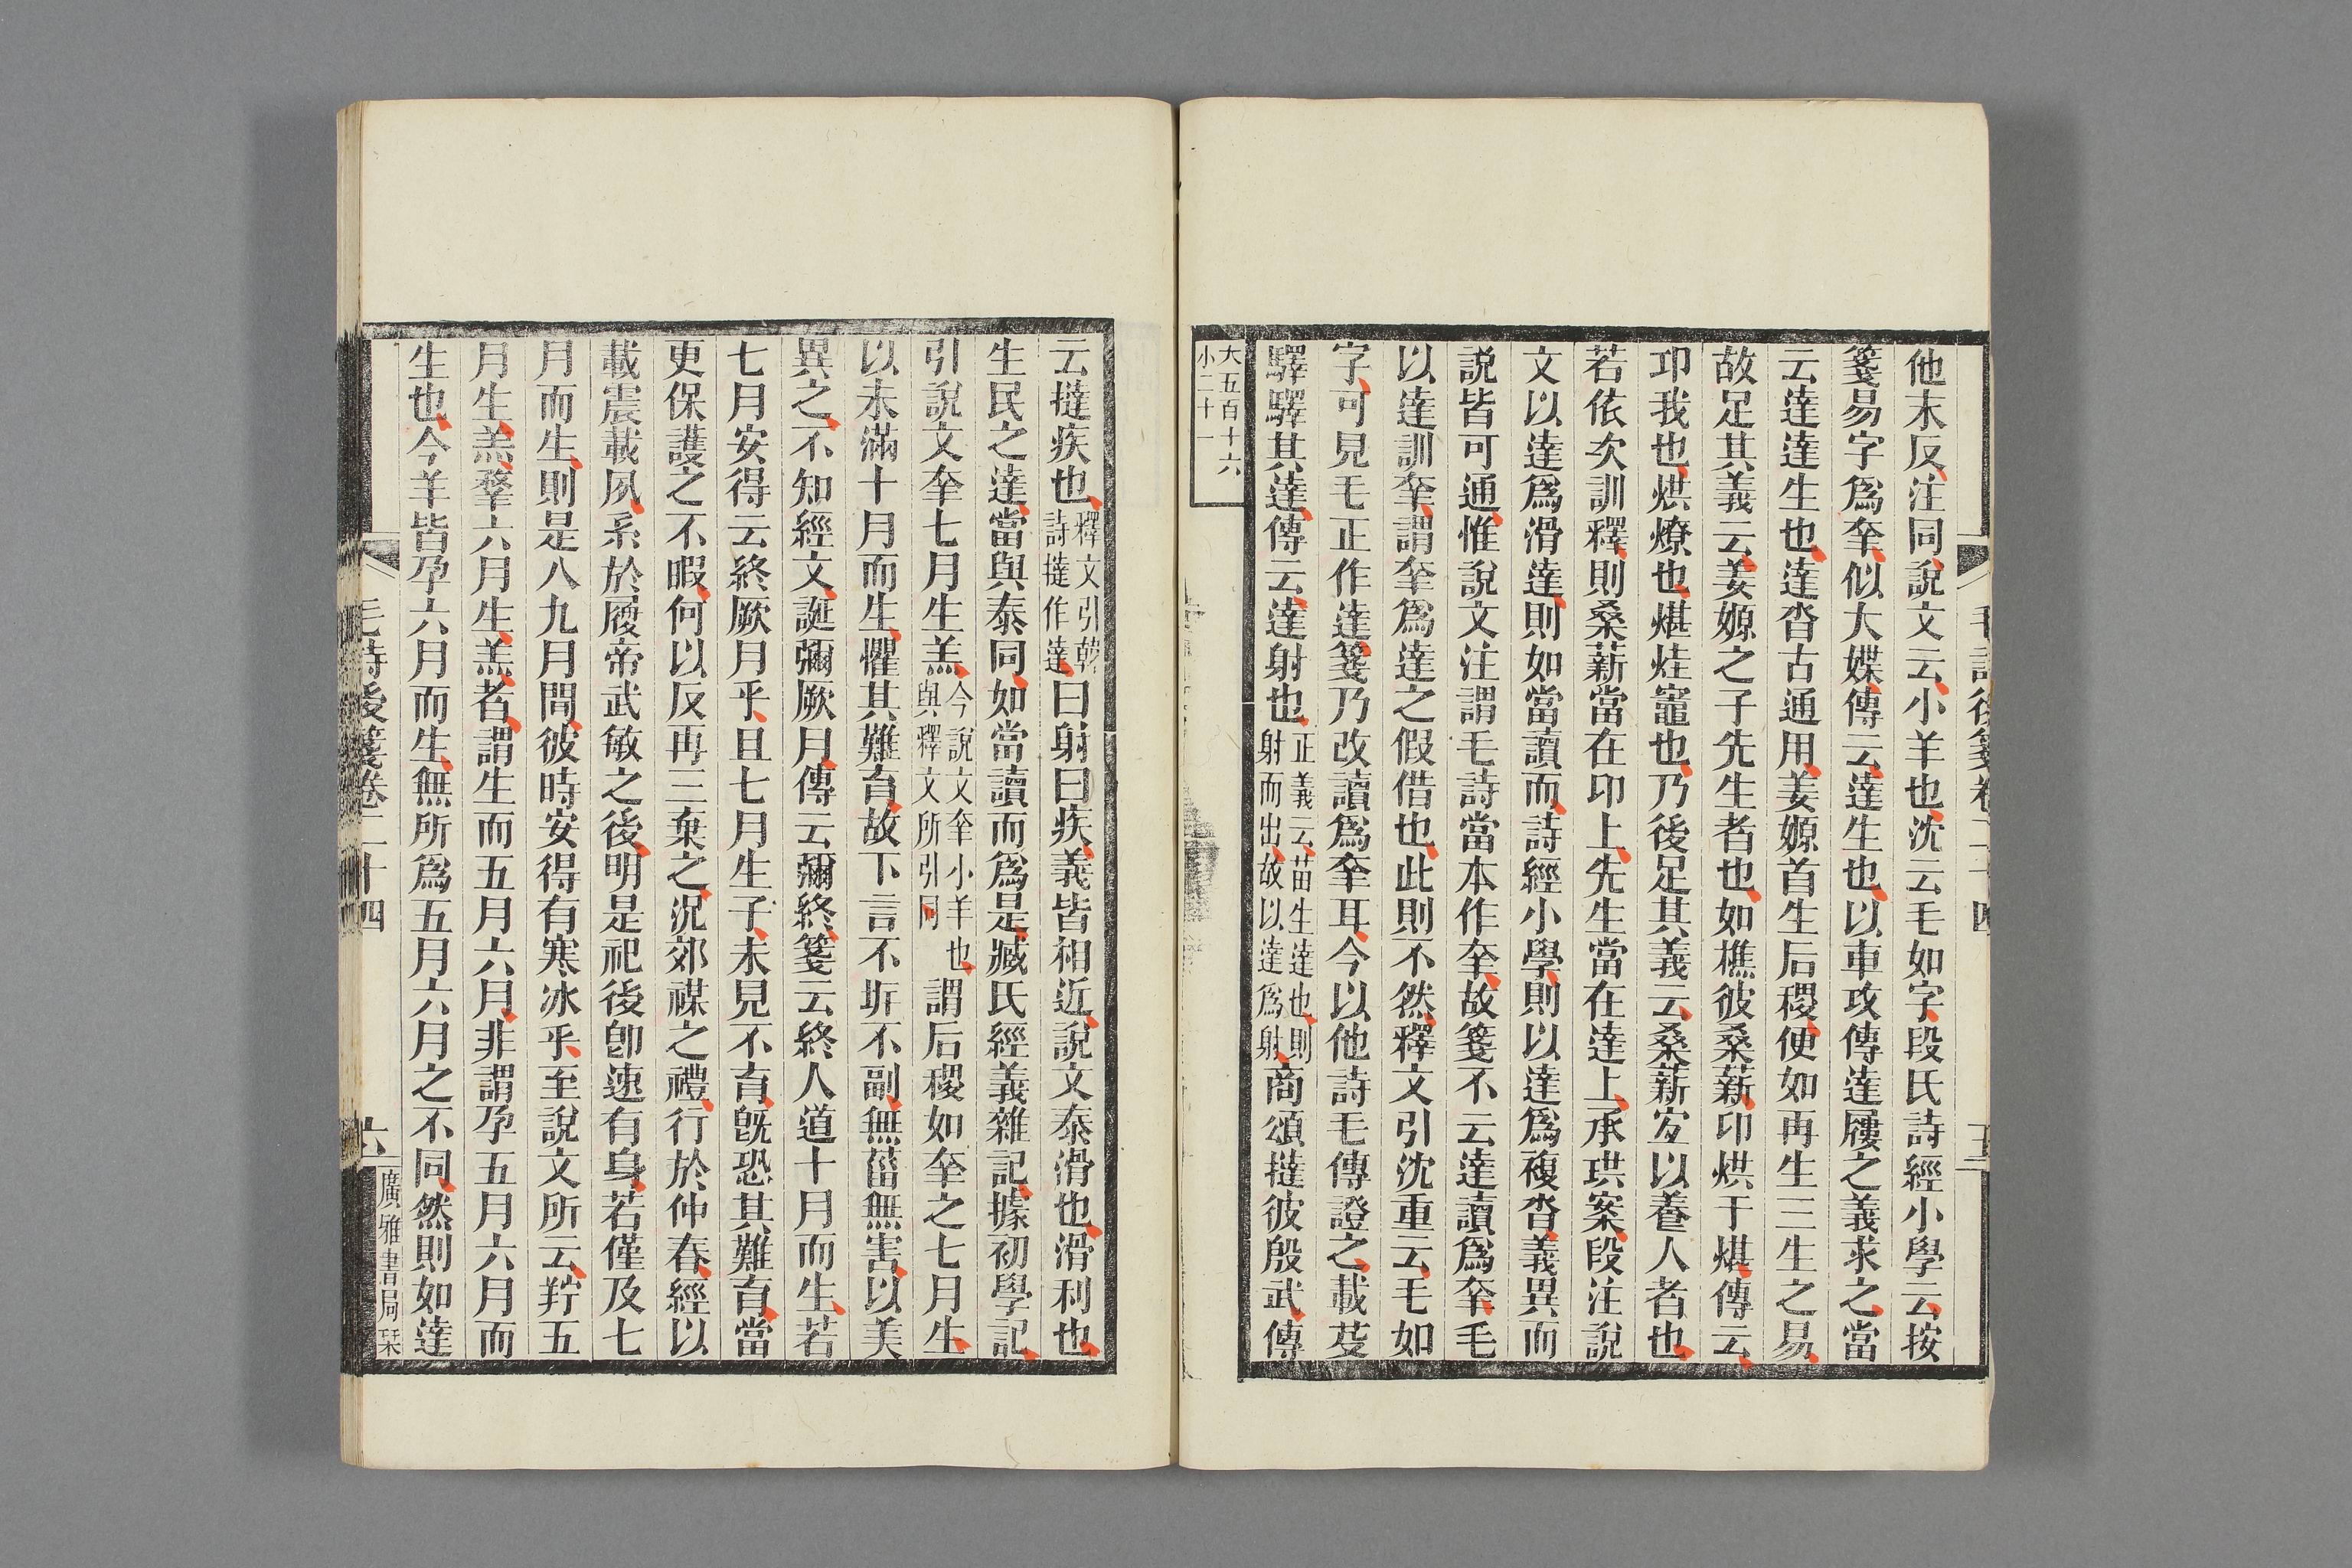 毛詩後箋卷二十四 五
他末反注同說文云小羊也沈云毛如字段氏詩經小學云按
箋易字爲羍似大媟傳云達生也以車攻傳達屨之義求之當
云達達生也達沓古通用姜嫄首生后稷便如再生三生之易
故足其義云姜嫄之子先生者也如樵彼桑薪卬烘于煁傳云
卬我也烘燎也煁烓竈也乃後足其義云桑薪宜以養人者也
若依次訓釋則桑薪當在卬上先生當在達上承珙案段注說
文以達爲滑達則如當讀而詩經小學則以達爲複沓義異而
說皆可通惟說文注謂毛詩當本作羍故箋不云達讀爲羍毛
以達訓羍謂羍爲達之假借也此則不然釋文引沈重云毛如
字可見毛正作達箋乃改讀爲羍耳今以他詩毛傳證之載芟
驛驛其達傳云達射也正義云苗生達也則射而出故以達爲射商頌撻彼殷武傳
大五百十六
小二十一
云撻疾也釋文引韓詩撻作達曰射曰疾義皆相近說文泰滑也滑利也
生民之達當與泰同如當讀而爲是臧氏經義雜記據初學記
引說文羍七月生羔今說文羍小羊也與釋文所引同謂后稷如羍之七月生
以未滿十月而生懼其難育故下言不坼不副無菑無害以美
異之不知經文誕彌厥月傳云彌終箋云終人道十月而生若
七月安得云終厥月乎且七月生子未見不育旣恐其難育當
更保護之不暇何以反再三棄之況郊禖之禮行於仲春經以
載震載夙系於履帝武敏之後明是祀後卽速有身若僅及七
月而生則是八九月間彼時安得有寒冰乎至說文所云羜五
月生羔𦎦六月生羔者謂生而五月六月非謂孕五月六月而
生也今羊皆孕六月而生無所爲五月六月之不同然則如達
毛詩後箋卷二十四 六 廣雅書局栞